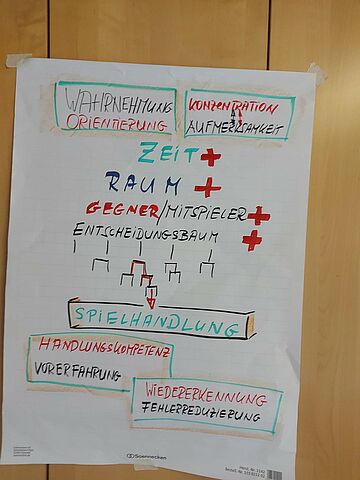 WAHRNEHMUNG
ORIENTIERUNG
KONZENTRATION
AUFMERKSAMKEIT
ZEIT +
RAUM +
GEGNER/MITSPIELER +
ENTSCHEIDUNGSBAUM +
SPIELHANDLUNG
HANDLUNGSKOMPETENZ
VORERFAHRUNG
WIEDERERKENNUNG
FEHLERREDUZIERUNG
Soennecken